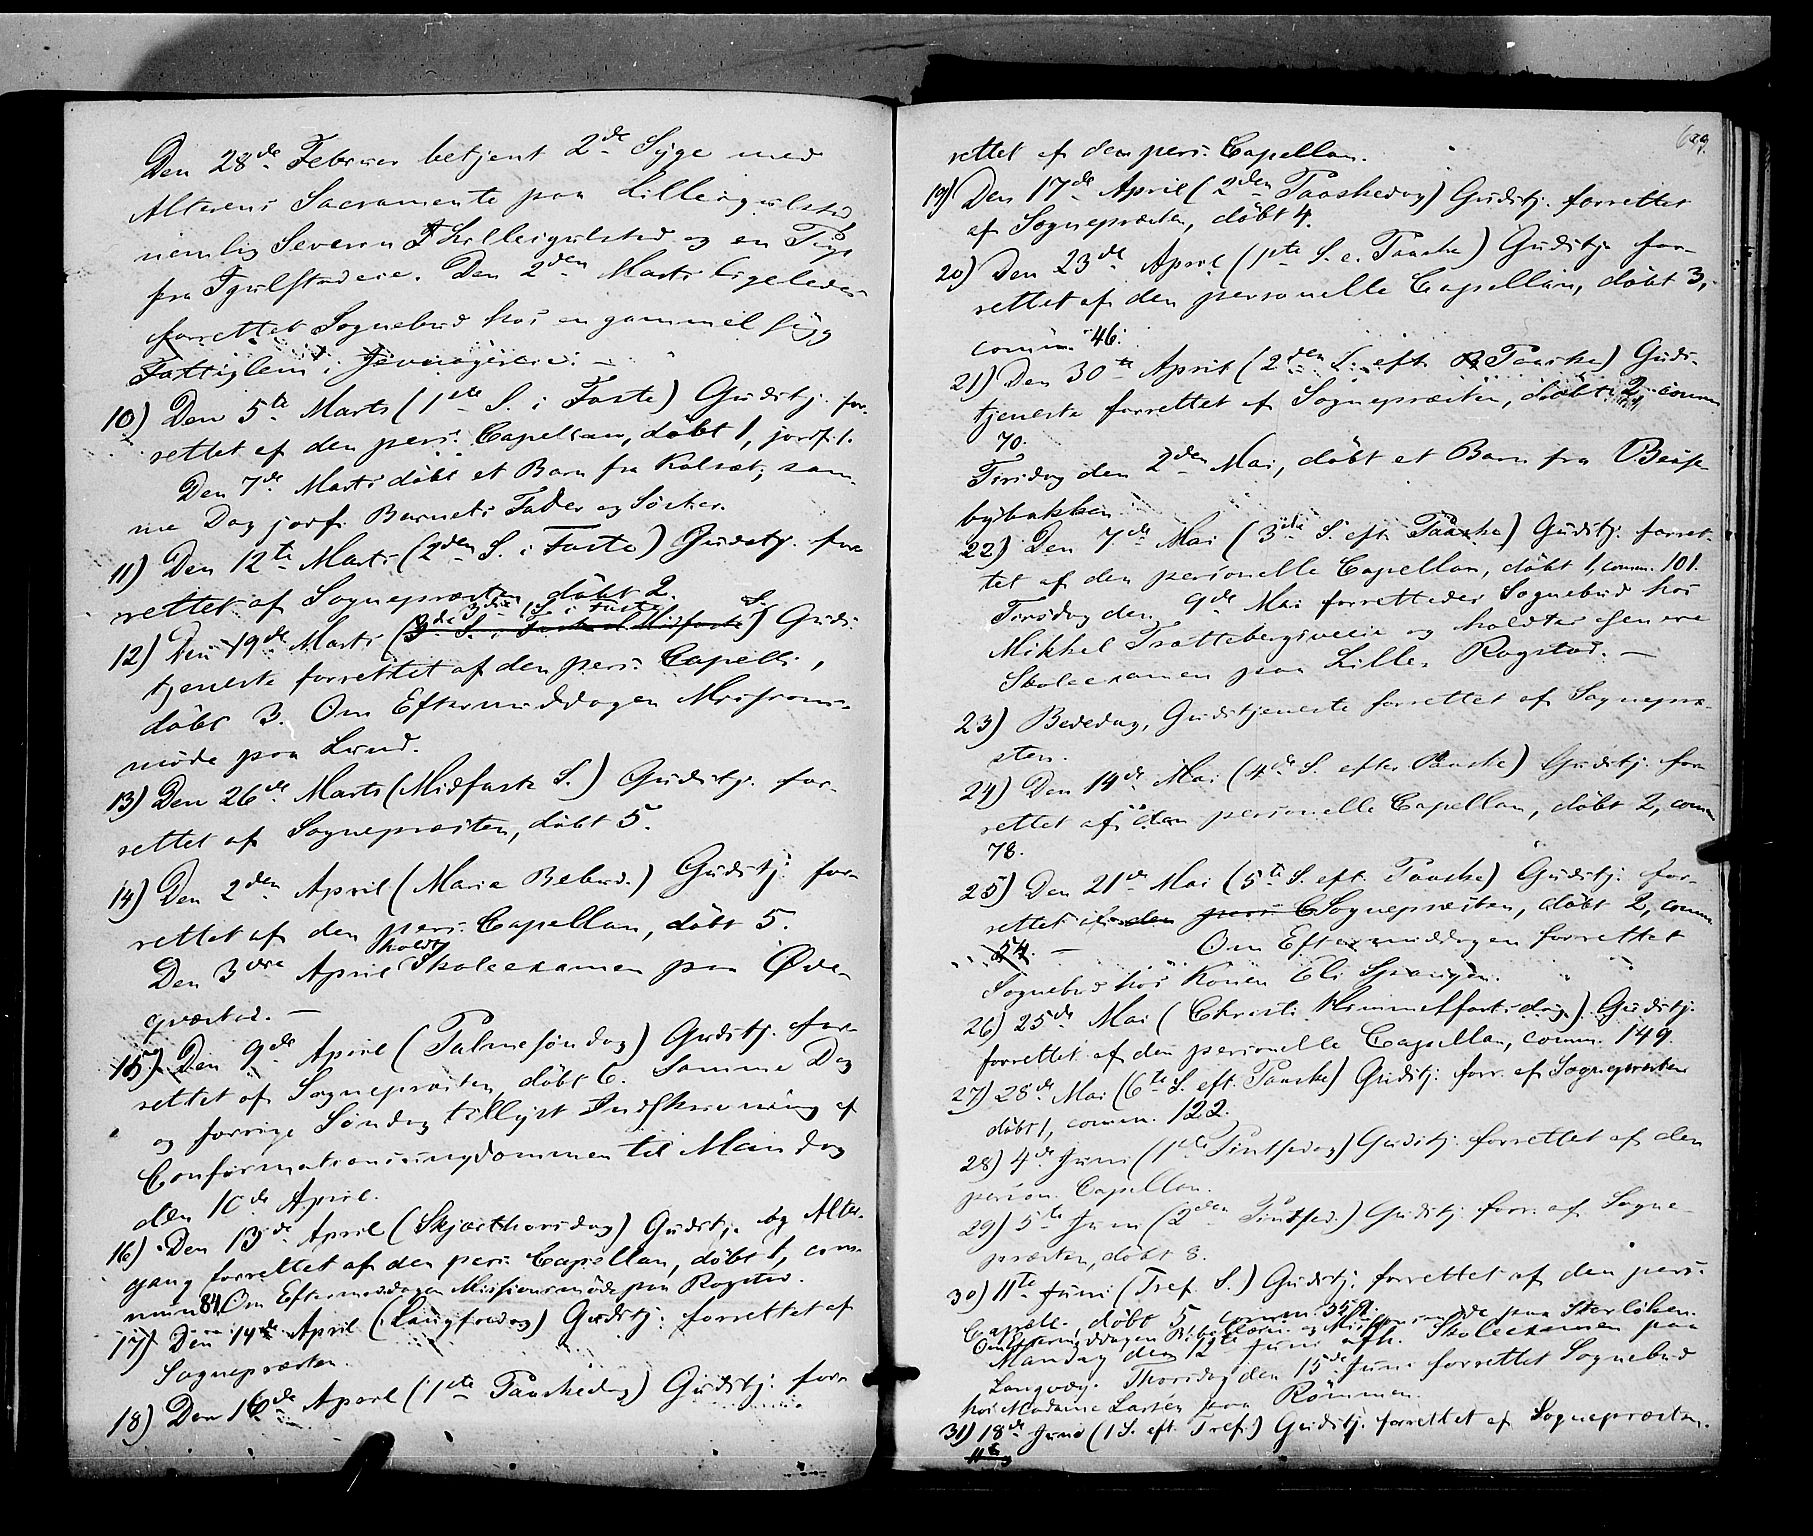 Den 28de Februar betjent 2de Syge med
Alterens Sacramente paa Lilleigulstad
nemlig Severin Lilleigulstad og en Pige
fra Igulstadeie. Den 2den Marts ligeledes
forrettet Sognebud hos en gammel syg
Fattiglem i
10) Den 5te Marts (1ste S. i Faste) Gudstj. for-
rettet af den pers. Capellan, döbt 1, jordf. 1.
Den 7de Marts döbt et Barn fra Kolset; sam-
me Dag jordf. Barnets Fader og Söster.
11) Den 12te Marts (2den S. i Faste) Gudstj. for-
rettet af Sognepræsten, döbt 2.
3die S. i Faste
12) Den 19de Marts (3die S. i Faste Midfaste S.) Guds-
tjeneste forrettet af den pers. Capell.,
döbt 3. Om Eftermiddagen Missions-
möde paa Lund.
13) Den 26de Marts (Midfaste S.) Gudstj. for-
rettet af Sognepræsten, döbt 5.
14) Den 2den April (Maria Bebud.) Gudstj. for-
rettet af den pers. Capellan, döbt 5.
holdt
Den 3die April Skoleexamen paa Øde-
qværtad. —
15) Den 9de April (Palmesöndag) Gudstj. for-
rettet af Sognepræsten, döbt 6. Samme Dag
og forrige Söndag tillyst Indskrivning af
Confirmationsungdommen til Mandag
den 10de April.
16) Den 13de April (Skjærthorsdag) Gudstj. og Alter-
gang forrettet af den pers. Capellan, döbt 1, com-
mun. 84. Om Eftermiddagen Missionsmöde paa Rogstad.
17) Den 14de April (Langfredag) Gudstj. forrettet af
Sognepræsten.
18) Den 16de April (1ste Paaskedag) Gudstj. for-
rettet af den pers. Capellan.
19) Den 17de April (2den Paaskedag) Gudstj. forrettet
af Sognepræsten, döbt 4.
20) Den 23de April (1ste S. e. Paaske) Gudstj. for-
rettet af den personelle Capellan, döbt 3,
comm. 46.
21) Den 30te April (2den S. eft. Paaske) Guds-
tjeneste forrettet af Sognepræsten, döbt 2, comm.
70.
Tirsdag den 2den Mai, döbt et Barn fra
bybakken.
22) Den 7de Mai (3die S. eft. Paaske) Gudstj. forret-
tet af den personelle Capellan, döbt 1, comm. 101.
Tirsdag den 9de Mai forrettedes Sognebud hos
Mikkel og holdtes
Skoleexamen paa Lille Rogstad. —
23) Bededag, Gudstjeneste forrettet af Sognepræ-
sten.
24) Den 14de Mai (4de S. efter Paaske) Gudstj. for-
rettet af den personelle Capellan, döbt 2, comm.
78.
25) Den 21de Mai (5te S. eft. Paaske) Gudstj. for-
rettet af den pers. C Sognepræsten, döbt 2, comm.
54. — Om Eftermiddagen forrettet
Sognebud hos Konen Eli
26) 25de Mai (Christi Himmelfartsdag) Gudstj.
forrettet af den personelle Capellan, comm. 149.
27) 28de Mai (6te S. eft. Paaske) Gudstj. forr. af Sognepræsten
döbt 1, comm. 122.
28) 4de Juni (1ste Pintsedag) Gudstj. forrettet af den
person. Capellan.
29) 5te Juni (2den Pintsed.) Gudstj. forr. af Sogne-
præsten, döbt 8.
30) 11te Juni (Tref. S.) Gudstj. forrettet af den pers.
Capell., döbt 5, comm.
Om Eftermiddagen og Missionsmöde paa
Mandag den 12te Juni Skoleexamen paa
Langvæg. Thorsdag den 15de Juni forrettet Sognebud
hos Madame Larsen paa Römmen.
31) 18de Juni (1 S. eft. Tref.) Gudstj. forrettet af Sognepræsten.